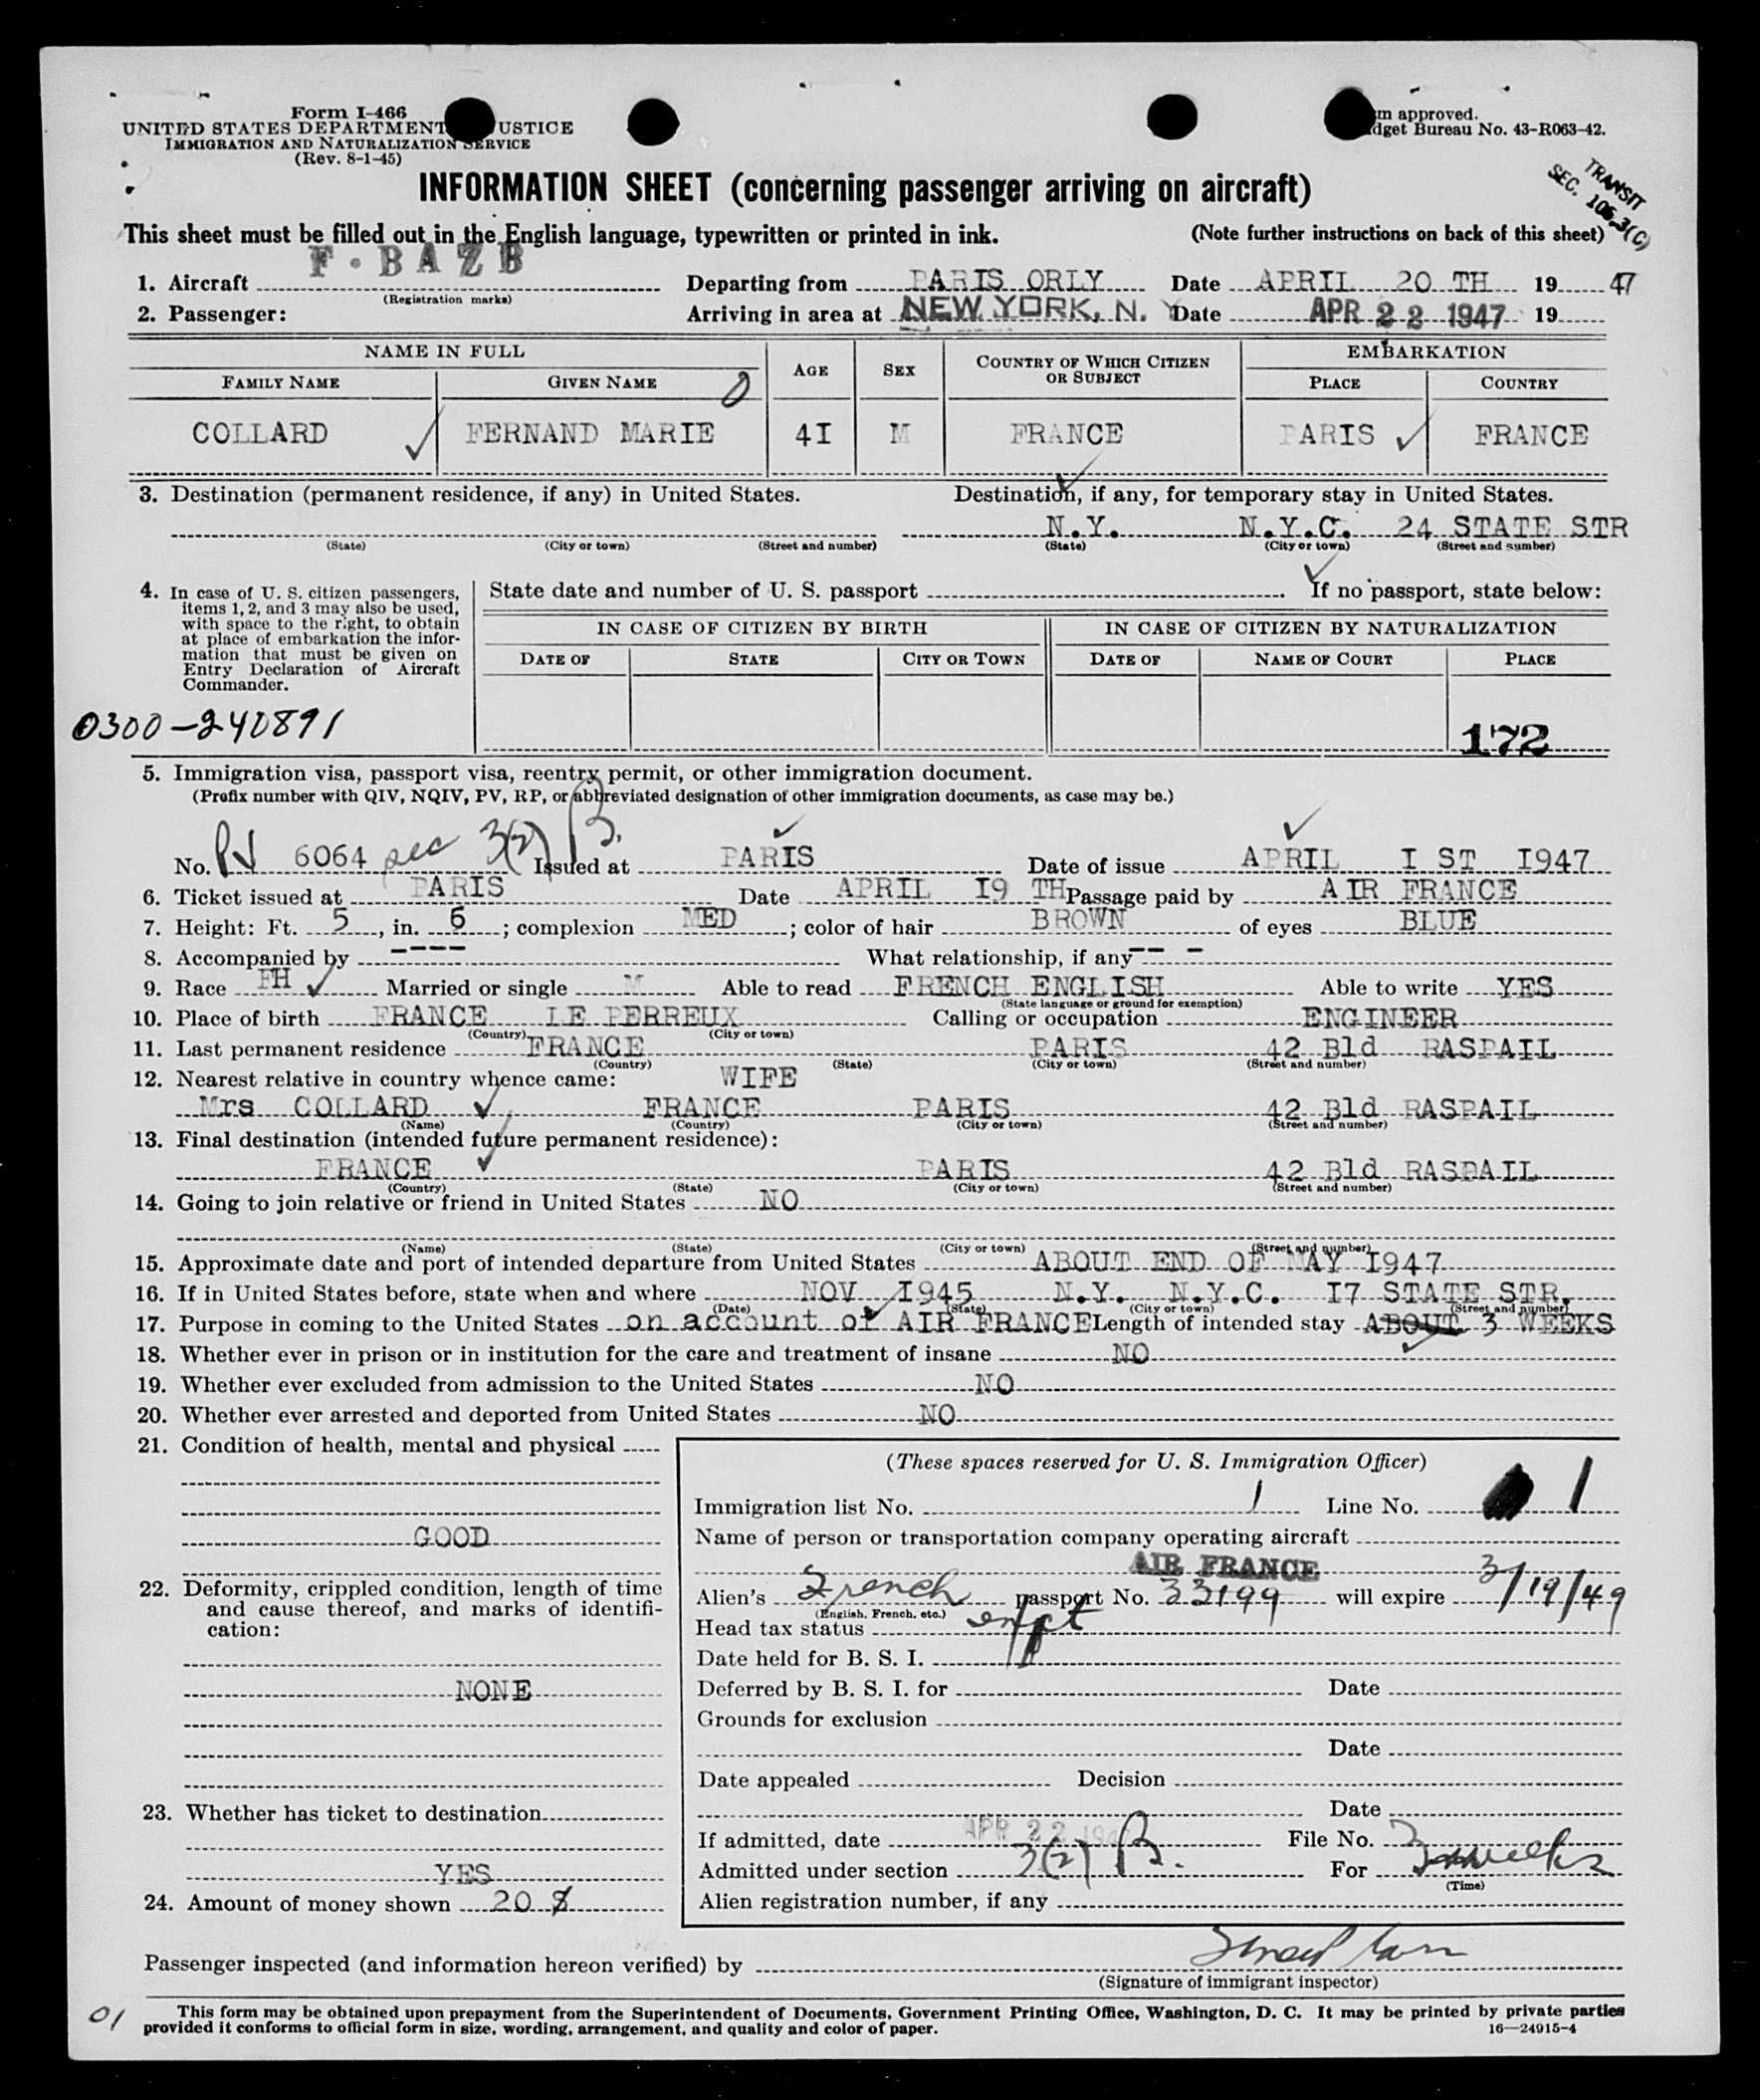 Form I-466
UNITED STATES DEPARTMENT USTICE
IMMIGRATION AND NATURALIZATION SERVICE
(Rev. 8-1-45)
m approved.
dget Bureau No. 43-R063-42.
TRANSIT
SEC. 106.3(C)
INFORMATION SHEET (concerning passenger arriving on aircraft)
This sheet must be filled out in the English language, typewritten or printed in ink. (Note further instructions on back of this sheet)
1. Aircraft F.BAZB Departing from PARIS ORLY Date APRIL 20 TH 19 47
(Registration marks)
2. Passenger: Arriving in area at NEW YORK, N. Y Date APR 22 1947 19
NAME IN FULL AGE SEX COUNTRY OF WHICH CITIZEN OR SUBJECT EMBARKATION
FAMILY NAME GIVEN NAME PLACE COUNTRY
COLLARD FERNAND MARIE 4I M FRANCE PARIS FRANCE
3. Destination (permanent residence, if any) in United States. Destination, if any, for temporary stay in United States.
N.Y. N.Y.C. 24 STATE STR
(State) (City or town) (Street and number) (State) (City or town) (Street and number)
4. In case of U. S. citizen passengers, items 1, 2, and 3 may also be used, with space to the right, to obtain at place of embarkation the information that must be given on Entry Declaration of Aircraft Commander.
State date and number of U. S. passport . If no passport, state below:
IN CASE OF CITIZEN BY BIRTH IN CASE OF CITIZEN BY NATURALIZATION
DATE OF STATE CITY OR TOWN DATE OF NAME OF COURT PLACE
0300-240891
172
5. Immigration visa, passport visa, reentry permit, or other immigration document.
(Prefix number with QIV, NQIV, PV, RP, or abbreviated designation of other immigration documents, as case may be.)
No. PV 6064 sec 3(2) B. Issued at PARIS Date of issue APRIL I ST I947
6. Ticket issued at PARIS Date APRIL I9 TH Passage paid by AIR FRANCE
7. Height: Ft. 5, in. 6; complexion MED; color of hair BROWN of eyes BLUE
8. Accompanied by ---- What relationship, if any -- -
9. Race FH Married or single M Able to read FRENCH ENGLISH Able to write YES
(State language or ground for exemption)
10. Place of birth FRANCE LE PERREUX Calling or occupation ENGINEER
(Country) (City or town)
11. Last permanent residence FRANCE PARIS 42 Bld RASPAIL
(Country) (State) (City or town) (Street and number)
12. Nearest relative in country whence came: WIFE
Mrs COLLARD FRANCE PARIS 42 Bld RASPAIL
(Name) (Country) (City or town) (Street and number)
13. Final destination (intended future permanent residence):
FRANCE PARIS 42 Bld RASPAIL
(Country) (State) (City or town) (Street and number)
14. Going to join relative or friend in United States NO
(Name) (State) (City or town) (Street and number)
15. Approximate date and port of intended departure from United States ABOUT END OF MAY I947
16. If in United States before, state when and where NOV I945 N.Y. N.Y.C. I7 STATE STR.
(Date) (State) (City or town) (Street and number)
17. Purpose in coming to the United States on account of AIR FRANCE Length of intended stay ABOUT 3 WEEKS
18. Whether ever in prison or in institution for the care and treatment of insane NO
19. Whether ever excluded from admission to the United States NO
20. Whether ever arrested and deported from United States NO
21. Condition of health, mental and physical
GOOD
22. Deformity, crippled condition, length of time and cause thereof, and marks of identification:
NONE
23. Whether has ticket to destination
YES
24. Amount of money shown 20 $
(These spaces reserved for U. S. Immigration Officer)
Immigration list No. 1 Line No. 1
Name of person or transportation company operating aircraft
AIR FRANCE
Alien's French passport No. 33199 will expire 3/19/49
(English, French, etc.)
Head tax status
Date held for B. S. I.
Deferred by B. S. I. for Date
Grounds for exclusion
Date
Date appealed Decision
Date
If admitted, date APR 22 194 File No.
Admitted under section 3(2) B. For 3 weeks
(Time)
Alien registration number, if any
Passenger inspected (and information hereon verified) by
(Signature of immigrant inspector)
01
This form may be obtained upon prepayment from the Superintendent of Documents, Government Printing Office, Washington, D. C. It may be printed by private parties
provided it conforms to official form in size, wording, arrangement, and quality and color of paper. 16—24915-4